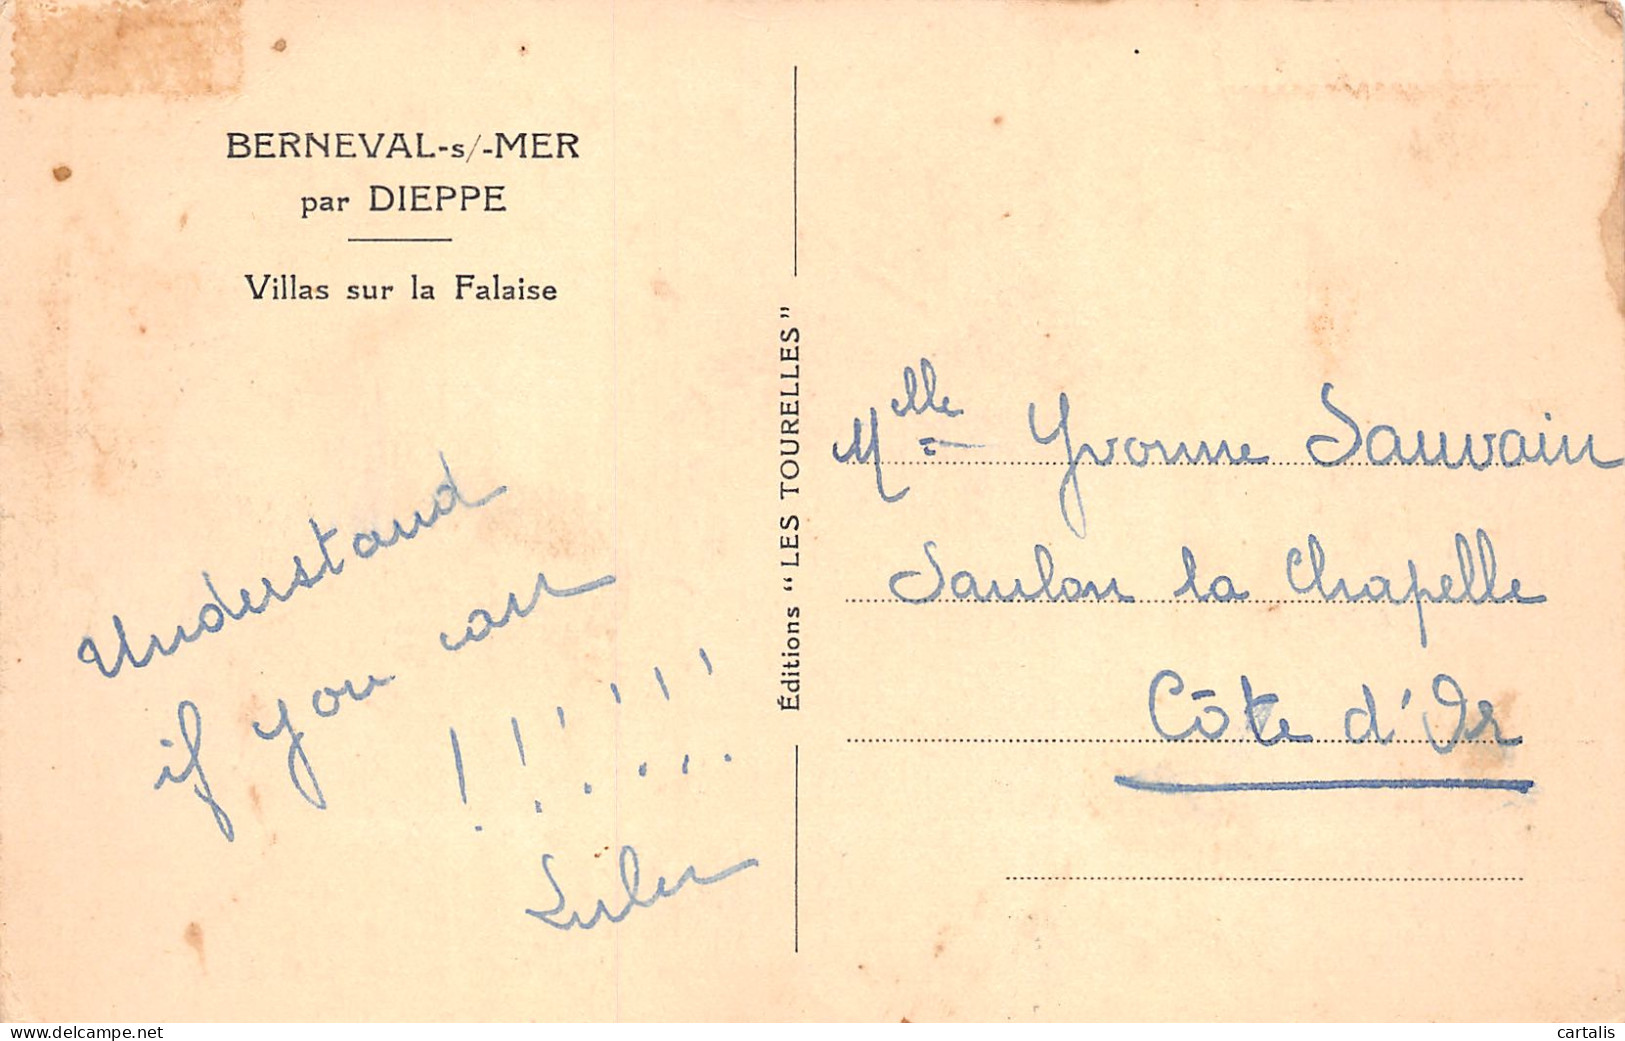 BERNEVAL-s/-MER
par DIEPPE
Villas sur la Falaise
Understand
if you can
! ! ! ! ! !
Éditions "LES TOURELLES"
Mlle Yvonne Sauvain
Saulon la Chapelle
Côte d'Or
delcampe.net
cartalis